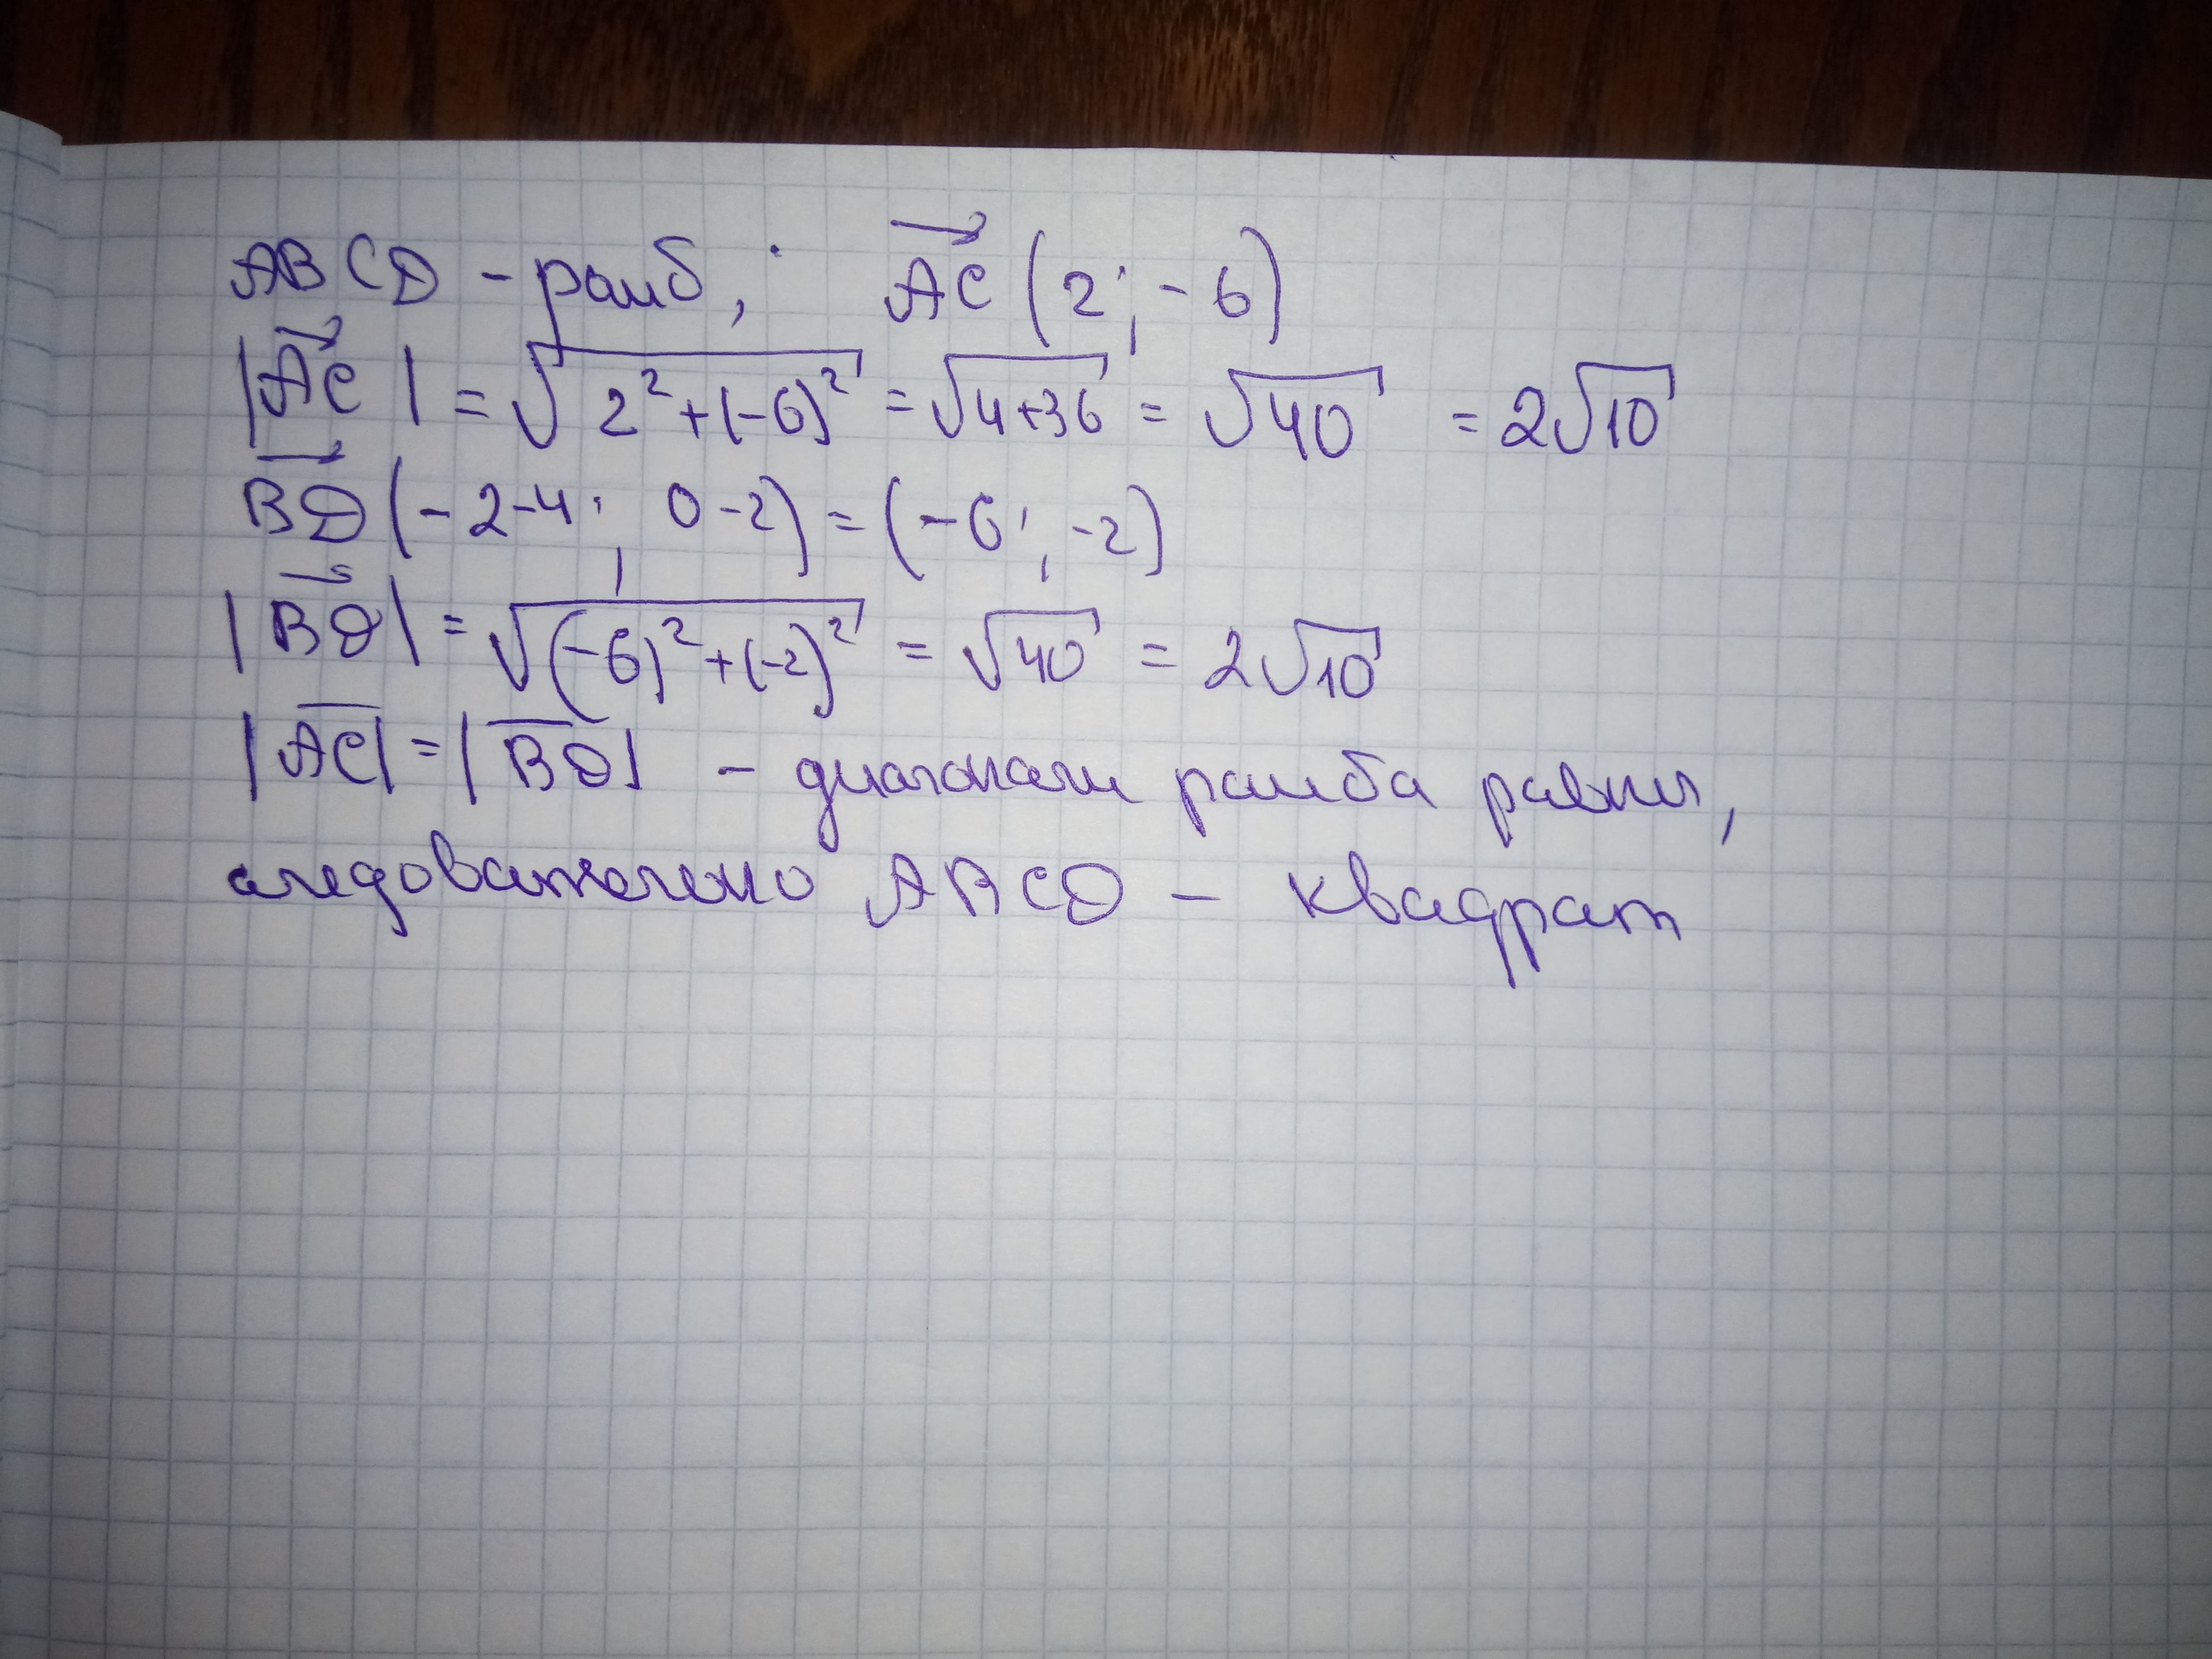 ABCD - ромб, AC (2; -6)
|AC| = √2²+(-6)² = √4+36 = √40 = 2√10
BD (-2-4; 0-2) = (-6; -2)
|BD| = √(-6)²+(-2)² = √40 = 2√10
|AC| = |BD| - диагонали ромба равны,
следовательно ABCD - квадрат